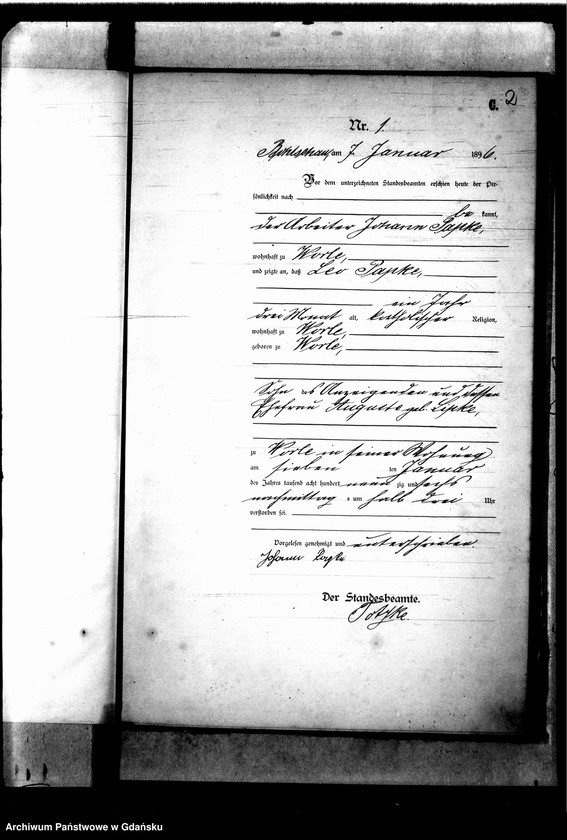 C. 2
Nr. 1.
Bohlschau am 7. Januar 1896.
Vor dem unterzeichneten Standesbeamten erschien heute der Per-
sönlichkeit nach
be kannt,
der Arbeiter Johann Papke,
wohnhaft zu Worle,
und zeigte an, daß Leo Papke,
ein Jahr
drei Monat alt, katholischer Religion,
wohnhaft zu Worle,
geboren zu Worle,
Sohn des Anzeigenden und dessen
Ehefrau Auguste geb. Lipke,
zu Worle in seiner Wohnung
am sieben ten Januar
des Jahres tausend acht hundert neun zig und sechs
nachmittag s um halb drei Uhr
verstorben sei.
Vorgelesen genehmigt und unterschrieben.
Johann Papke
Der Standesbeamte.
Archiwum Państwowe w Gdańsku